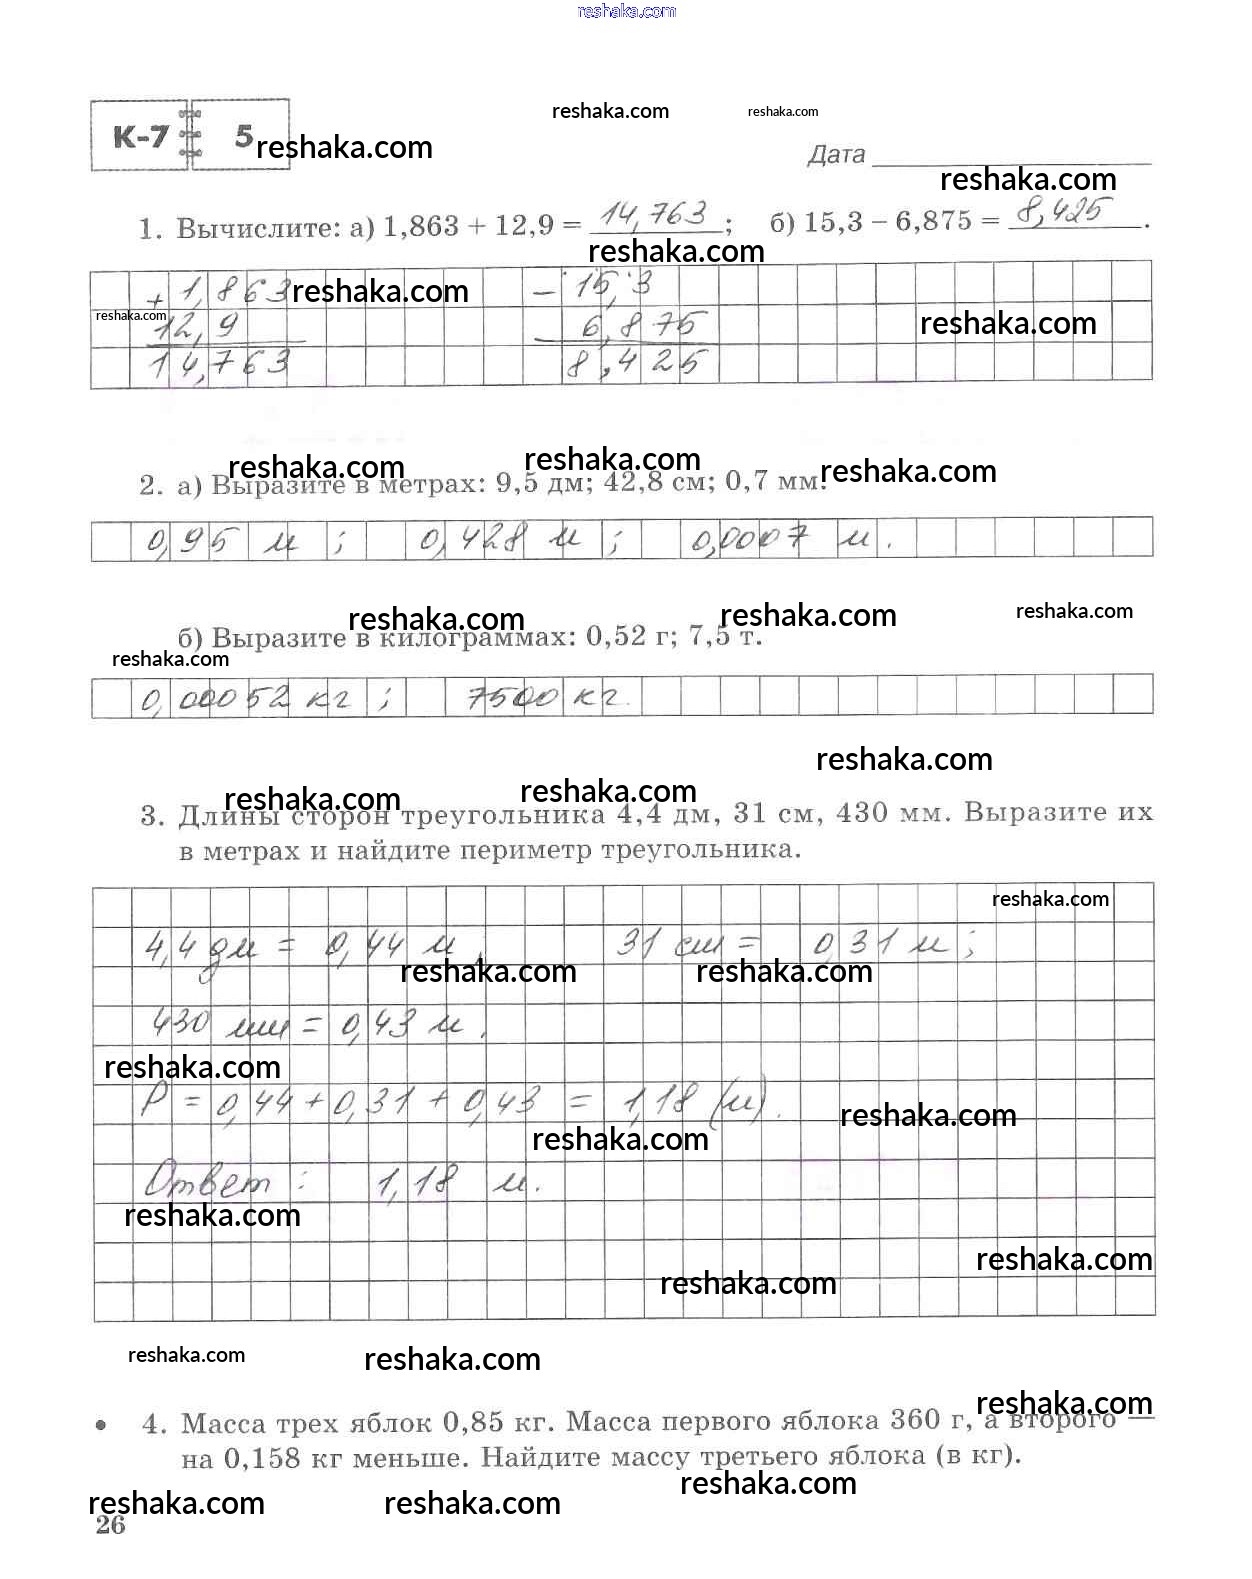 reshaka.com
reshaka.com reshaka.com
К-7 5 reshaka.com
Дата
reshaka.com
1. Вычислите: а) 1,863 + 12,9 = 14,763 ; б) 15,3 – 6,875 = 8,425 .
reshaka.com
+ 1,863 reshaka.com – 15,3
reshaka.com 12,9 6,875 reshaka.com
14,763 8,425
reshaka.com reshaka.com reshaka.com
2. а) Выразите в метрах: 9,5 дм; 42,8 см; 0,7 мм.
0,95 м ; 0,428 м ; 0,0007 м .
reshaka.com reshaka.com reshaka.com
б) Выразите в килограммах: 0,52 г; 7,5 т.
reshaka.com
0,00052 кг ; 7500 кг.
reshaka.com
reshaka.com reshaka.com
3. Длины сторон треугольника 4,4 дм, 31 см, 430 мм. Выразите их
в метрах и найдите периметр треугольника.
reshaka.com
4,4 дм = 0,44 м ; 31 см = 0,31 м ;
reshaka.com reshaka.com
430 мм = 0,43 м .
reshaka.com
P = 0,44 + 0,31 + 0,43 = 1,18 (м) .
reshaka.com
reshaka.com
Ответ : 1,18 м .
reshaka.com
reshaka.com
reshaka.com
reshaka.com reshaka.com
reshaka.com
• 4. Масса трех яблок 0,85 кг. Масса первого яблока 360 г, а второго —
на 0,158 кг меньше. Найдите массу третьего яблока (в кг).
reshaka.com
reshaka.com reshaka.com
26